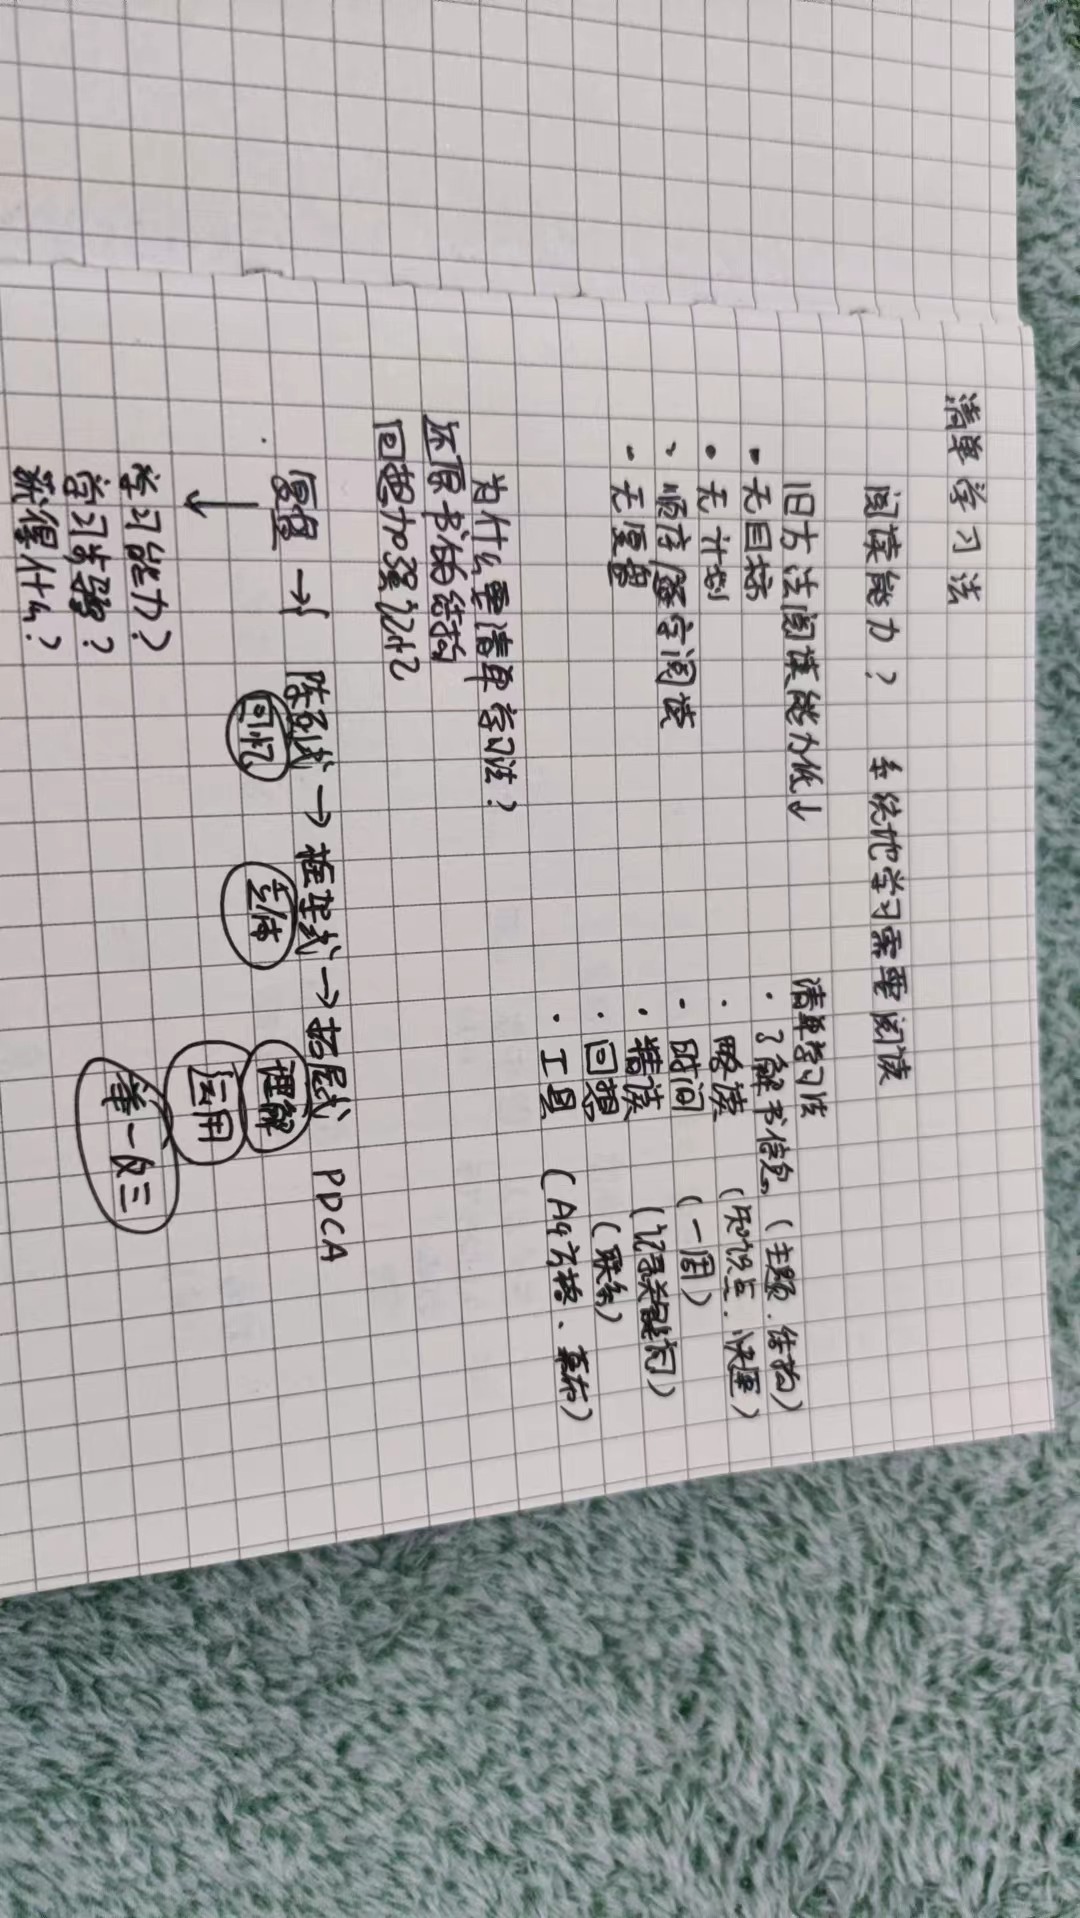 清单学习法
阅读能力？ 系统地学习需要阅读
旧方法阅读能力低↓
· 无目标
· 无计划
、顺序/逐字阅读
· 无复盘
清单学习法
· 了解书信息（主题.结构）
· 略读（知识点.快速）
· 时间（一周）
· 精读（记录关键词）
· 回想（联系）
· 工具（A4方格、草稿）
为什么要清单学习法？
还原书的结构
回想加强记忆
复盘 → 陈列式 → 框架式 → 拓展式 PDCA
回忆
整体
理解
运用
举一反三
↓
学习能力？
学习内容？
觉得什么？